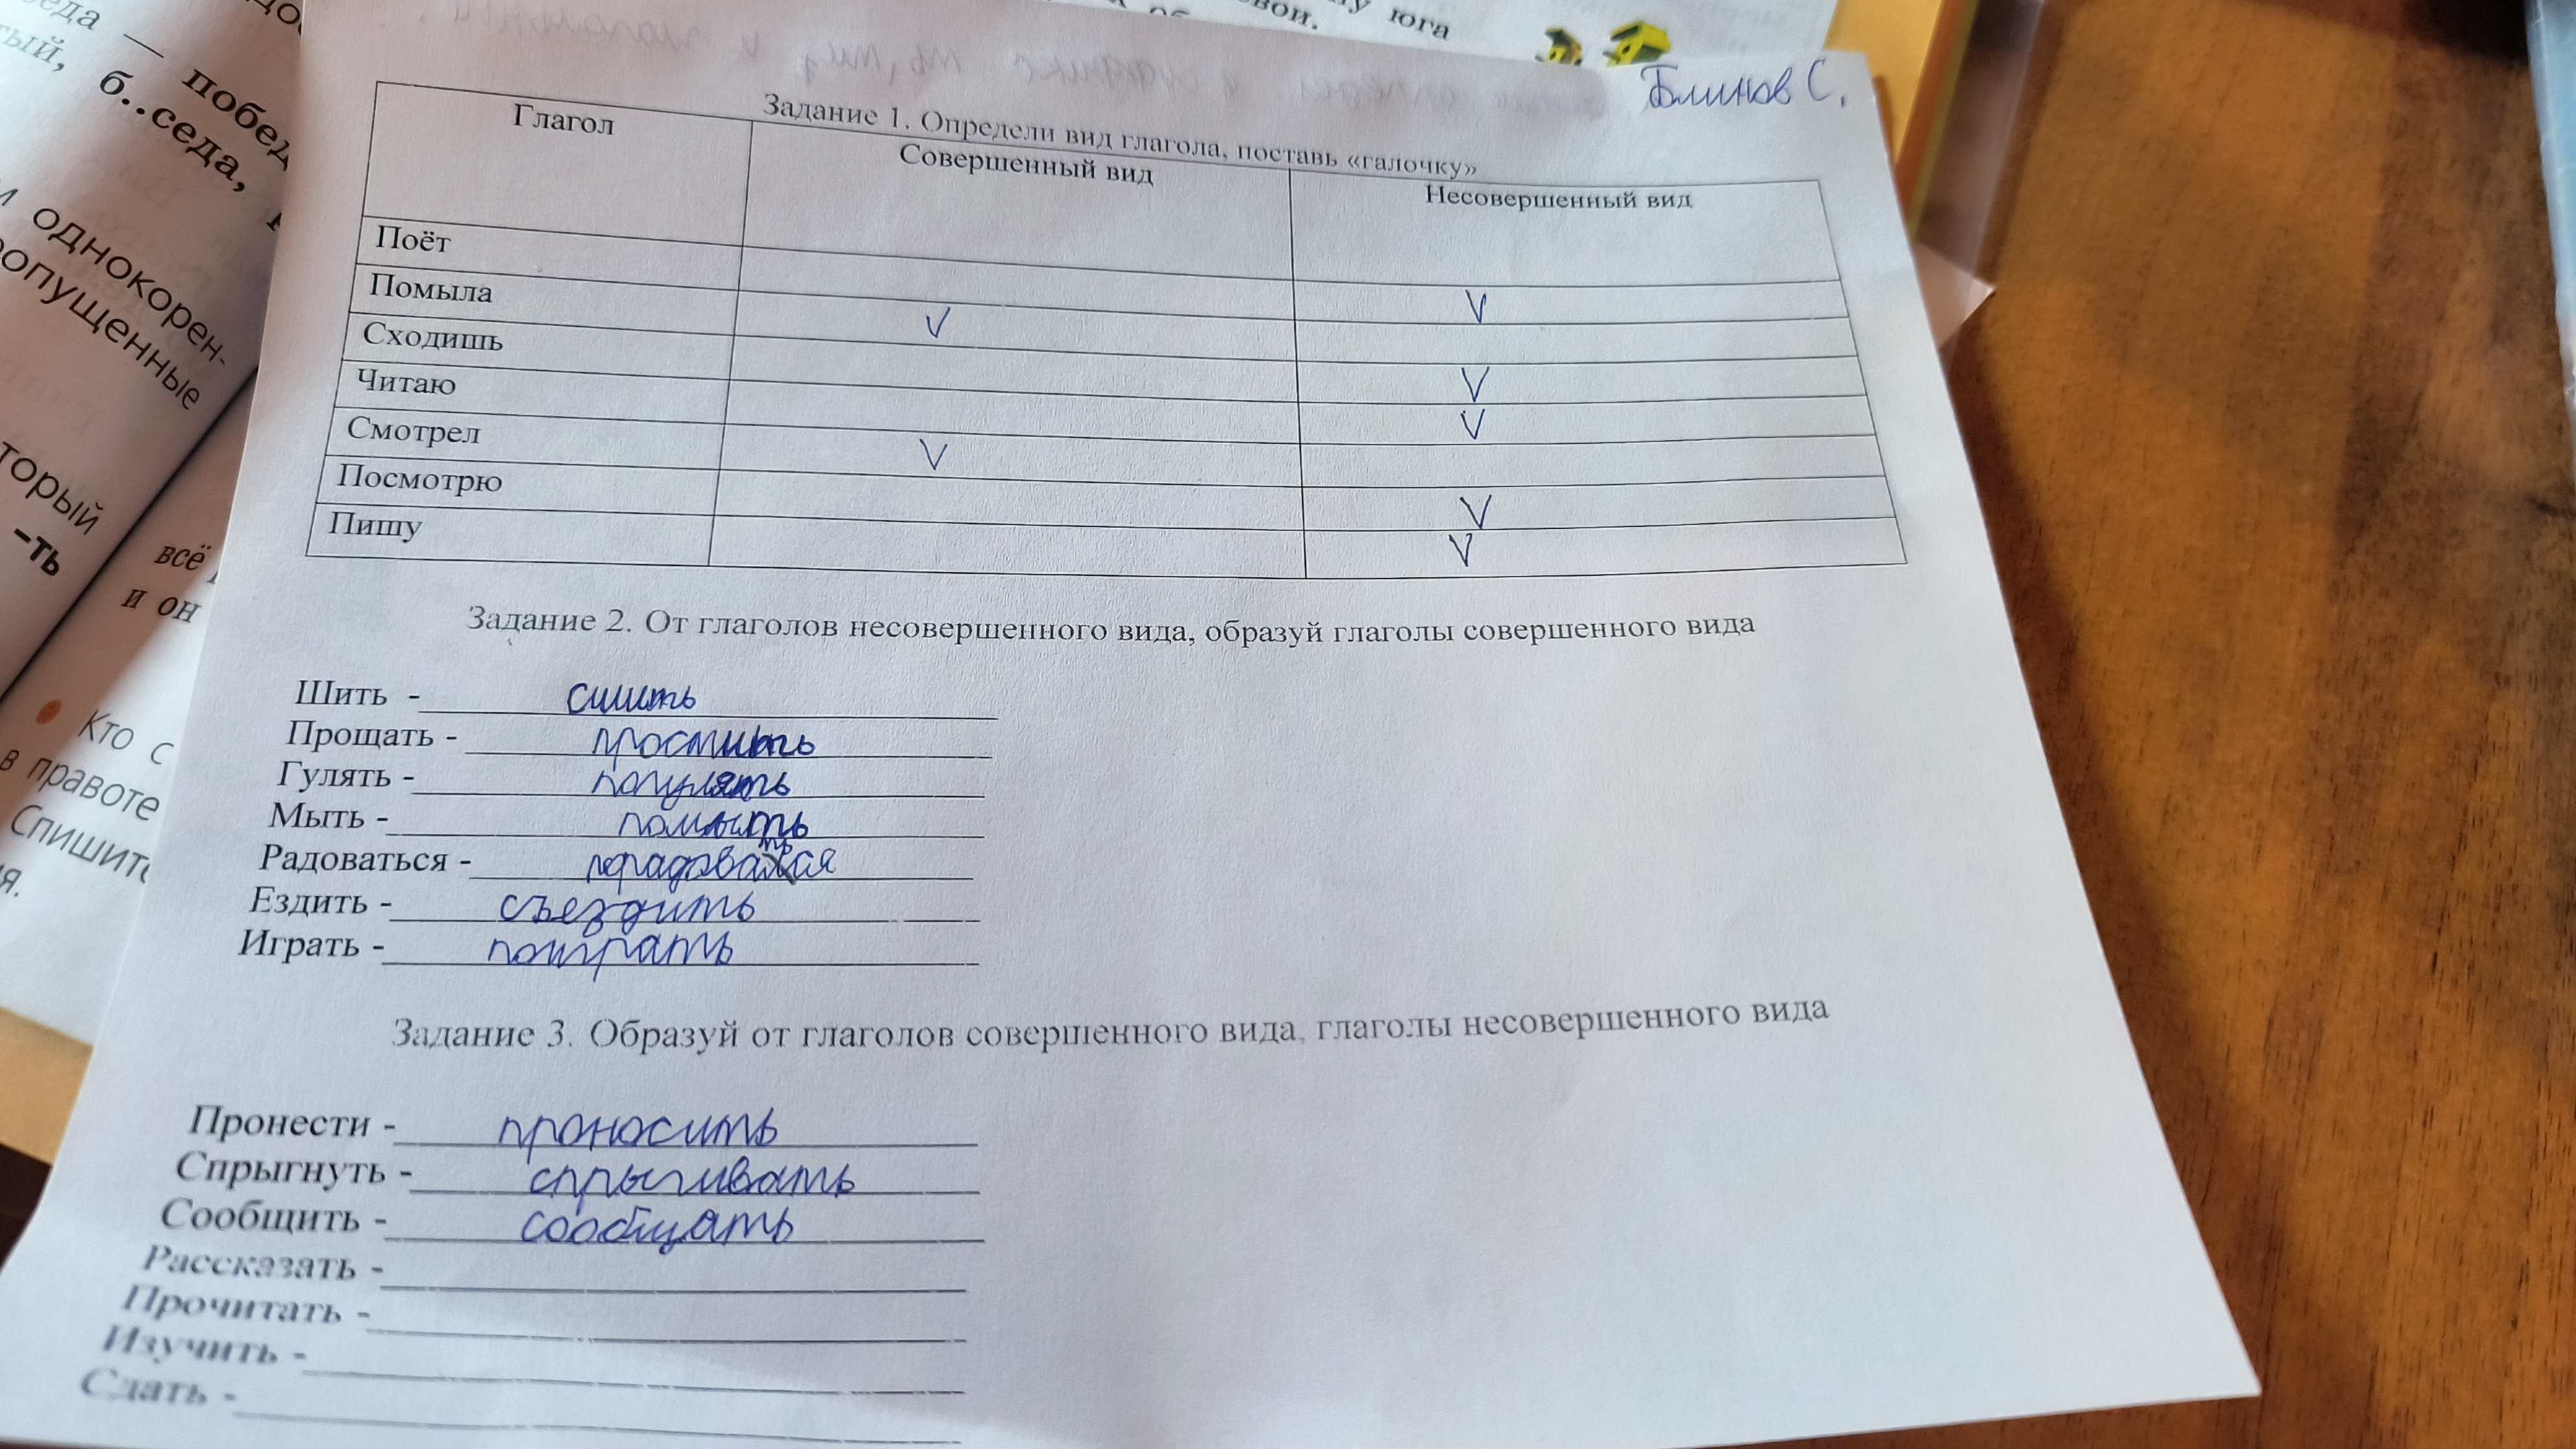 еда — побед
тый,
б..седа,
и однокорен-
ропущенные
торый
-ть
всё
и он
Кто с
в правоте
Спишите
я.
юга
вои.
Блинов С.
Задание 1. Определи вид глагола, поставь «галочку»
Глагол Совершенный вид Несовершенный вид
Поёт V
Помыла V
Сходишь V
Читаю V
Смотрел V
Посмотрю V
Пишу V
Задание 2. От глаголов несовершенного вида, образуй глаголы совершенного вида
Шить - сшить
Прощать - простить
Гулять - погулять
Мыть - помыть
Радоваться - порадоваться
Ездить - съездить
Играть - поиграть
Задание 3. Образуй от глаголов совершенного вида, глаголы несовершенного вида
Пронести - проносить
Спрыгнуть - спрыгивать
Сообщить - сообщать
Рассказать -
Прочитать -
Изучить -
Сдать -